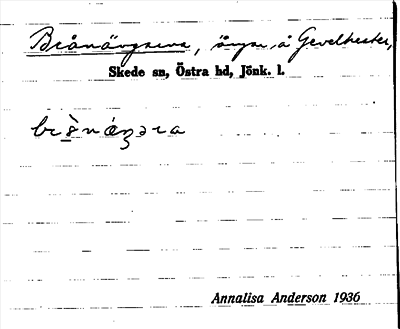 Brånängarna, ängar, å Gevelhester,
Skede sn, Östra hd, Jönk. l.
Annalisa Anderson 1936